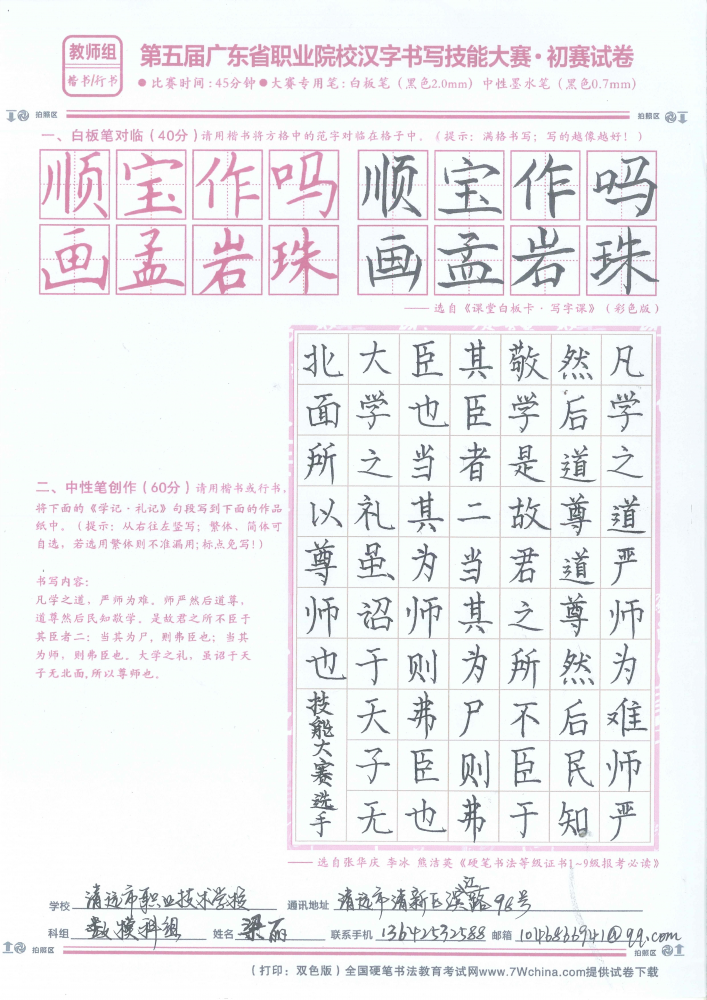 教师组
楷书/行书
第五届广东省职业院校汉字书写技能大赛·初赛试卷
●比赛时间:45分钟●大赛专用笔:白板笔(黑色2.0mm) 中性墨水笔(黑色0.7mm)
拍照区
拍照区
一、白板笔对临(40分)请用楷书将方格中的范字对临在格子中。(提示:满格书写;写的越像越好!)
顺宝作吗 顺宝作吗
画孟岩珠 画孟岩珠
—— 选自《课堂白板卡·写字课》(彩色版)
二、中性笔创作(60分)请用楷书或行书,
将下面的《学记·礼记》句段写到下面的作品
纸中。(提示:从右往左竖写;繁体、简体可
自选,若选用繁体则不准漏用;标点免写!)
书写内容:
凡学之道,严师为难。师严然后道尊,
道尊然后民知敬学。是故君之所不臣于
其臣者二:当其为尸,则弗臣也;当其
为师,则弗臣也。大学之礼,虽诏于天
子无北面,所以尊师也。
凡学之道严师为难师严
然后道尊道尊然后民知
敬学是故君之所不臣于
其臣者二当其为尸则弗
臣也当其为师则弗臣也
大学之礼虽诏于天子无
北面所以尊师也
技能大赛选手
—— 选自张华庆 李冰 熊洁英《硬笔书法等级证书1~9级报考必读》
学校 清远市职业技术学校 通讯地址 清远市清新区滨江路98号
科组 数模科组 姓名 梁丽 联系手机 13642532588 邮箱
拍照区
拍照区
(打印:双色版)全国硬笔书法教育考试网www.7Wchina.com提供试卷下载